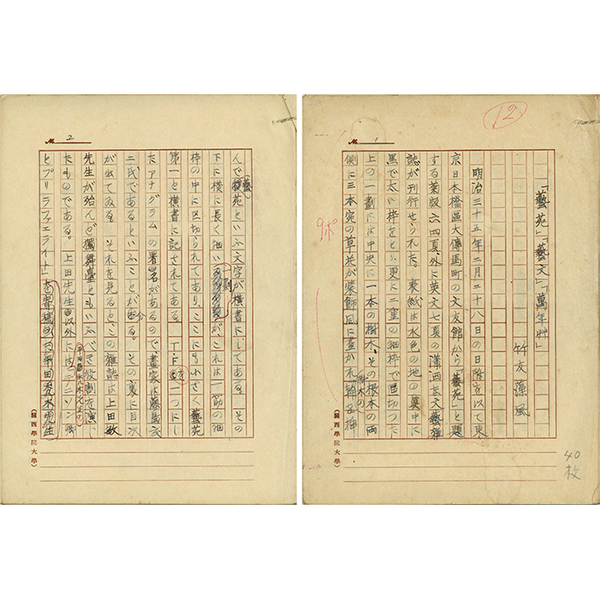 12
1
「藝苑」「藝文」「萬年艸」
竹友藻風
明治三十五年二月二十八日の日附を以て東
京日本橋區大傳馬町の文友館から「藝苑」と題
する菊版六四頁、外に英文七頁の
誌が刊行せられた。表紙は水色の地の眞中に
黒で太い枠をとり、更に二重の細枠で區切つた
上の一劃には中央に一本の樹木、その根本の兩
側に三本宛の草花が裝飾風に畫かれ
40枚
(關西學院大學)
2
んで藝苑といふ文字が横書にしてある。その
下に横に長く細い がこれは一筋の細
枠の中に區切られてあり、ここに小さく藝苑
第一と横書に記されてある。T.F. 一つにし
たアナグラムの署名があるので、畫家は藤島武
二氏であるといふことが分る。その裏に目次
が出てゐる。それを見ると、この雜誌は上田敏
先生が殆んど獨舞臺ともいふべき役割を演じ
たものである。上田先生以外にはテニソン
とプリラファエライト
(關西學院大學)